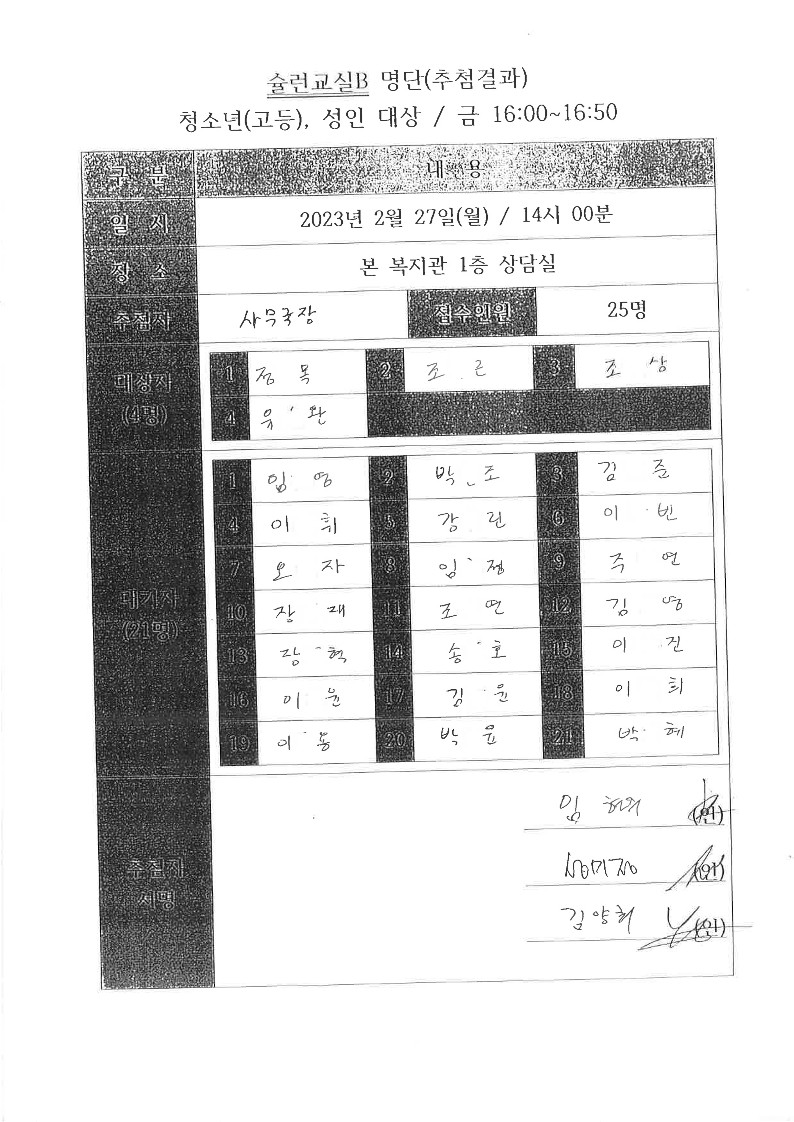 슐런교실B 명단(추첨결과)
청소년(고등), 성인 대상 / 금 16:00~16:50
구 분 내 용
일 시 2023년 2월 27일(월) / 14시 00분
장 소 본 복지관 1층 상담실
추첨자 사무국장 접수인원 25명
대상자
(4명)
1 정 목 2 조 은 3 조 상
4 유 완
대기자
(21명)
1 임 영 2 박 조 3 김 준
4 이 휘 5 강 린 6 이 빈
7 오 자 8 임 정 9 주 연
10 장 재 11 조 연 12 김 영
13 장 혁 14 송 호 15 이 진
16 이 윤 17 김 윤 18 이 희
19 이 용 20 박 윤 21 박 혜
추첨자
서명
임 (인)
(인)
김양희 (인)